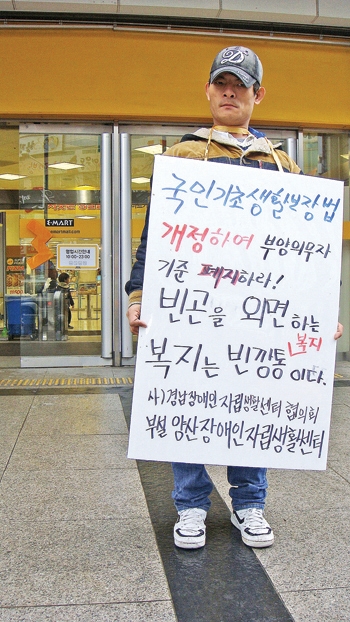 국민기초생활보장법
개정하여 부양의무자
기준 폐지하라!
빈곤을 외면하는
복지는 빈깡통복지이다.
사)경남장애인자립생활센터 협의회
부설 양산장애인자립생활센터
E-MART
emartmall.com
영업시간안내
10:00~23:00